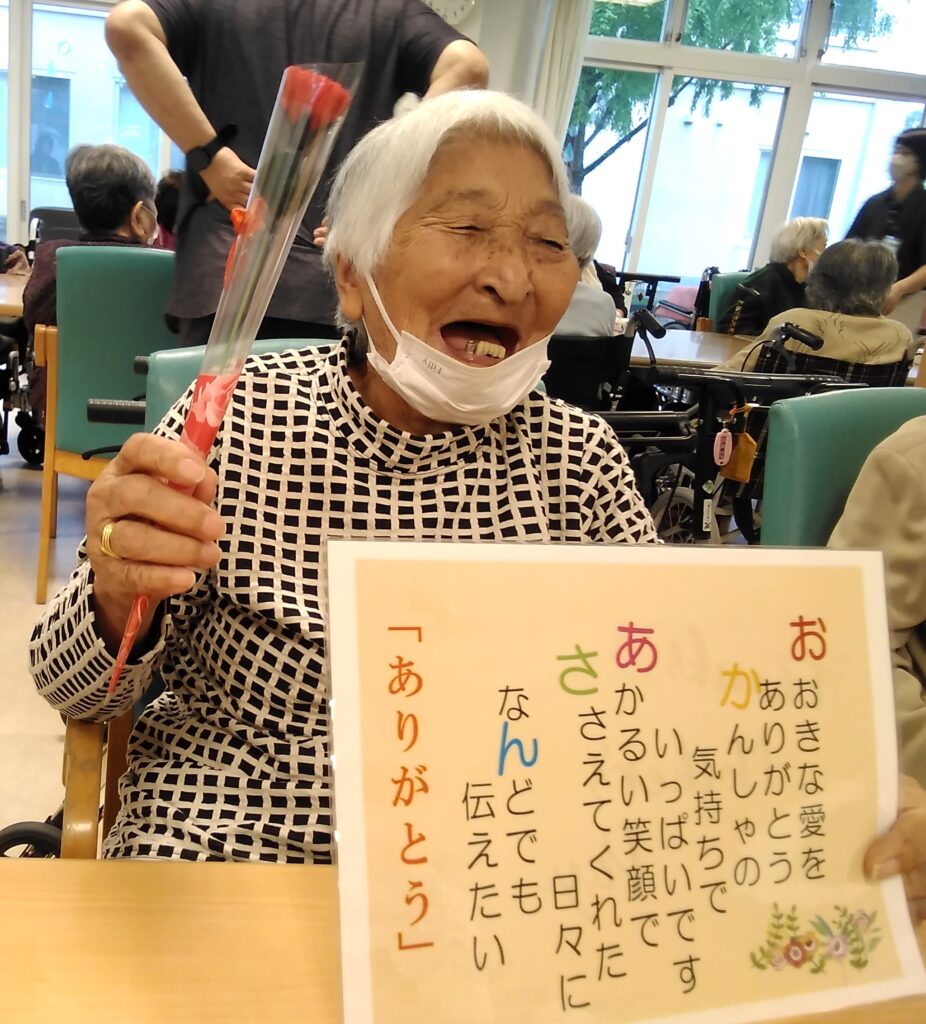 おおきな愛を
ありがとう
かんしゃの
気持ちで
いっぱいです
あかるい笑顔で
ささえてくれた
日々に
なんどでも
伝えたい
「ありがとう」